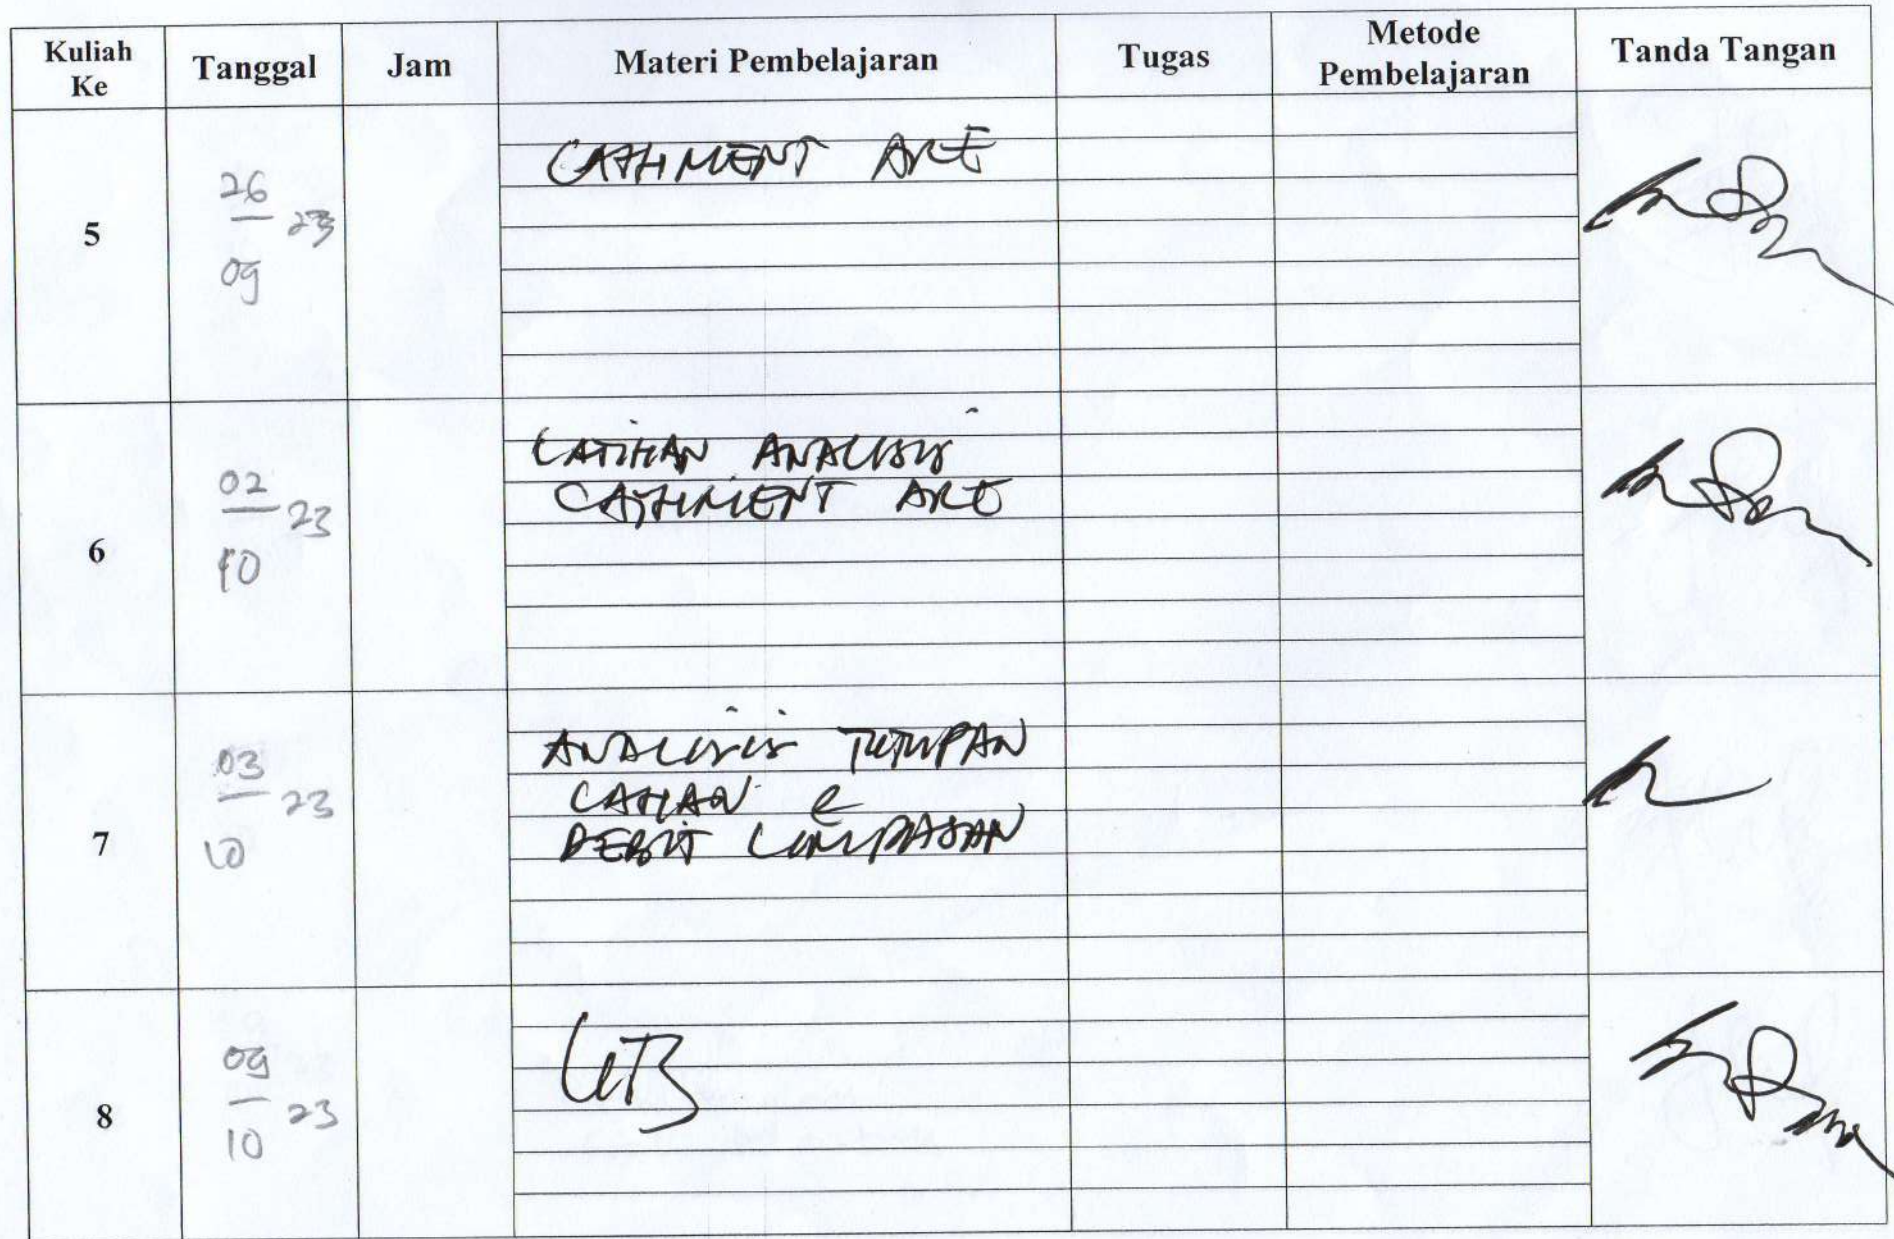 Kuliah Ke Tanggal Jam Materi Pembelajaran Tugas Metode Pembelajaran Tanda Tangan
5
26
— 23
09
CATHMENT ARE
6
02
— 23
10
LATIHAN ANALISIS
CATHMENT ARE
7
03
— 23
10
ANALISIS TUTUPAN
LAHAN &
DEBIT LIMPASAN
8
09
— 23
10